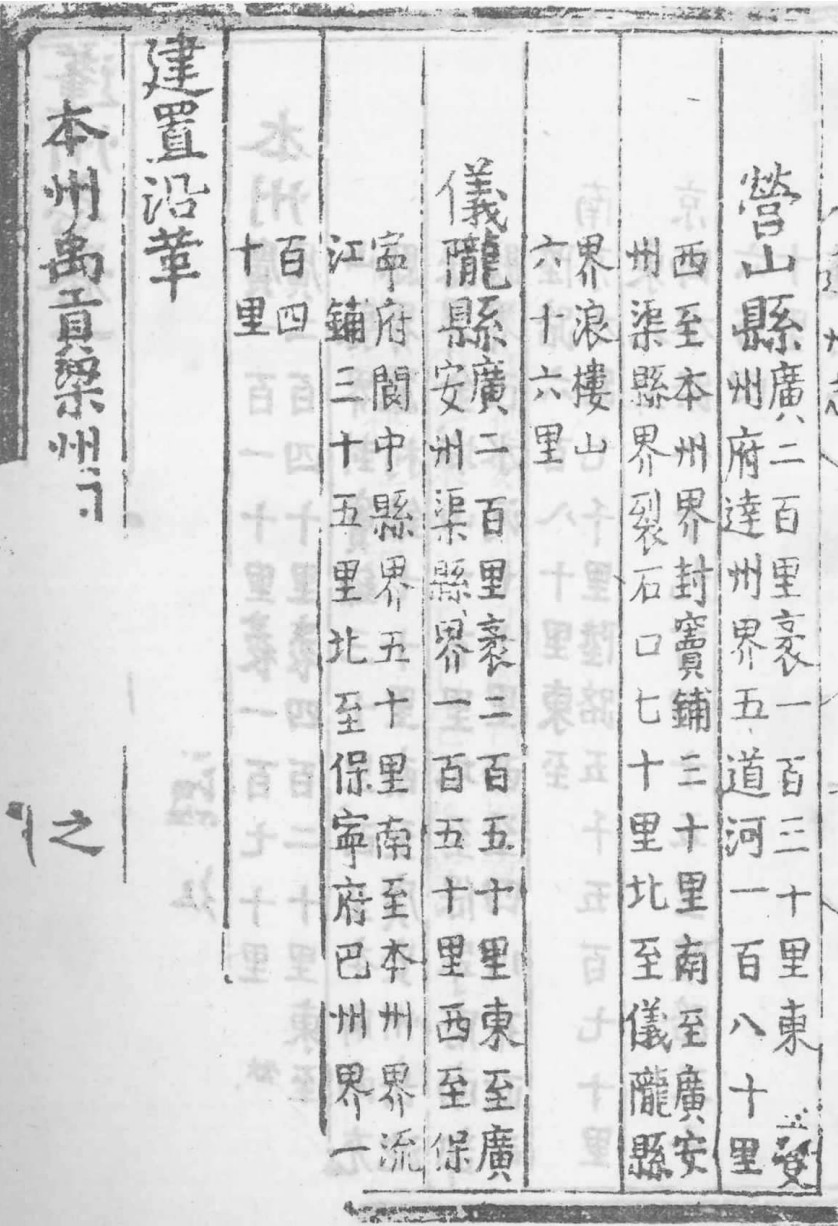 營山縣
廣二百里袤一百三十里東至夔
州府達州界五道河一百八十里
西至本州界封竇鋪三十里南至廣安
州渠縣界裂石口七十里北至儀隴縣
界浪樓山
六十六里
儀隴縣
廣二百里袤二百五十里東至廣
安州渠縣界一百五十里西至保
寧府閬中縣界五十里南至本州界流
江鋪三十五里北至保寧府巴州界一
百四
十里
建置沿革
本州禹貢梁州之